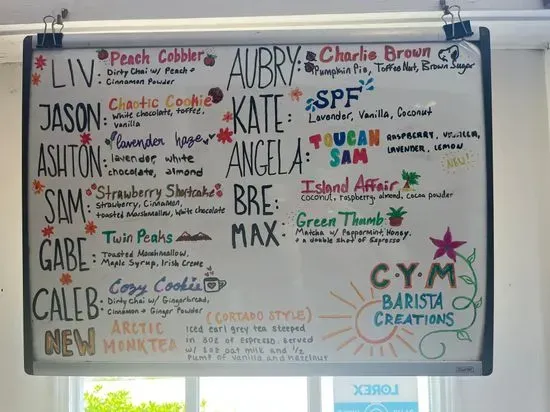 LIV: Peach Cobbler
Dirty Chai w/ Peach +
Cinnamon Powder
JASON: Chaotic Cookie
White chocolate, toffee,
vanilla
ASHTON: lavender haze
lavender white
chocolate, almond
SAM: Strawberry Shortcake
Strawberry, Cinnamon,
toasted Marshmallow, White chocolate
GABE: Twin Peaks
Toasted Marshmallow,
Maple Syrup, Irish Creme
CALEB: Cozy Cookie
Dirty Chai w/ Gingerbread,
Cinnamon + Ginger Powder
NEW ARCTIC MONKTEA (CORTADO STYLE)
Iced earl grey tea steeped
in 3oz of espresso. Served
w/ 3oz oat milk and 1/2
pump of vanilla and hazelnut
AUBRY: Charlie Brown
Pumpkin Pie, Toffee Nut, Brown Sugar
KATE: SPF
Lavender, Vanilla, Coconut
ANGELA: TOUCAN SAM
RASPBERRY, VANILLA,
LAVENDER, LEMON
NEW!
BRE: Island Affair
coconut, raspberry, almond, cocoa powder
MAX: Green Thumb
Matcha w/ Peppermint, Honey,
+ a double shot of Espresso
C·Y·M
BARISTA
CREATIONS
LOREX